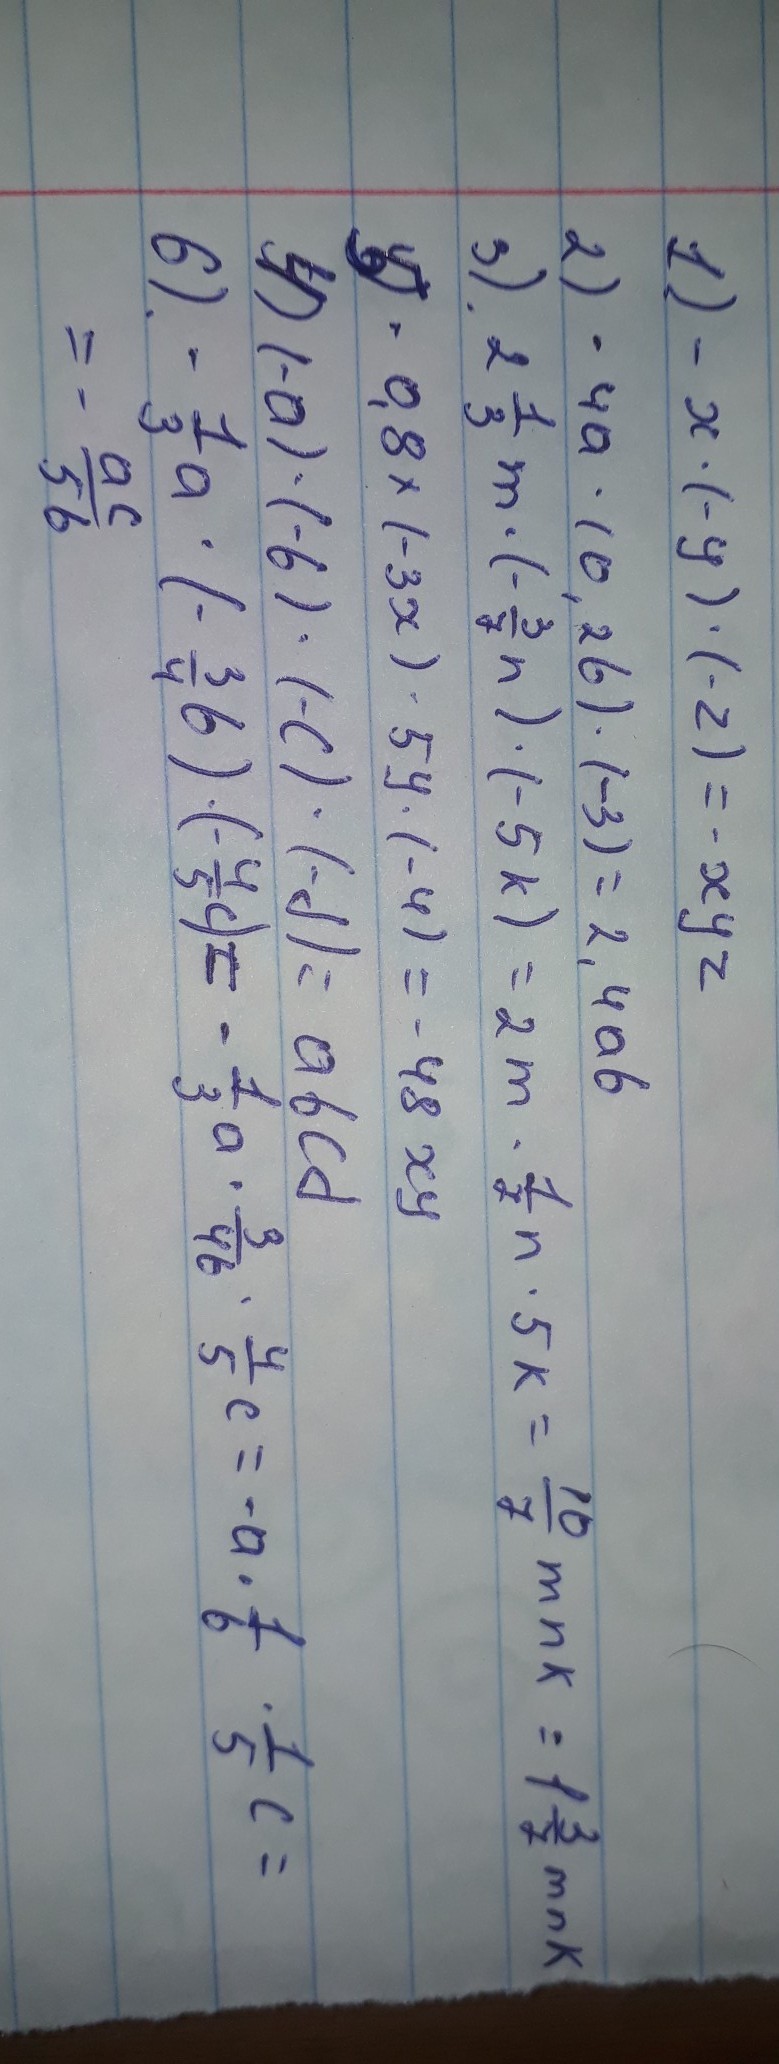 1) - x · (-y) · (-z) = - xyz
2) - 4a · (0,2b) · (-3) = 2,4ab
3). 2 1/3 m · (- 3/7 n) · (-5k) = 2m · 1/7 n · 5k = 10/7 mnk = 1 3/7 mnk
4) - 0,8 × (-3x) · 5y · (-4) = - 48 xy
5) (-a) · (-b) · (-c) · (-d) = abcd
6). - 1/3 a · (- 3/4 b) · (- 4/5 c) = - 1/3 a · 3/4b · 4/5 c = -a · 1/b · 1/5 c =
= - ac/5b